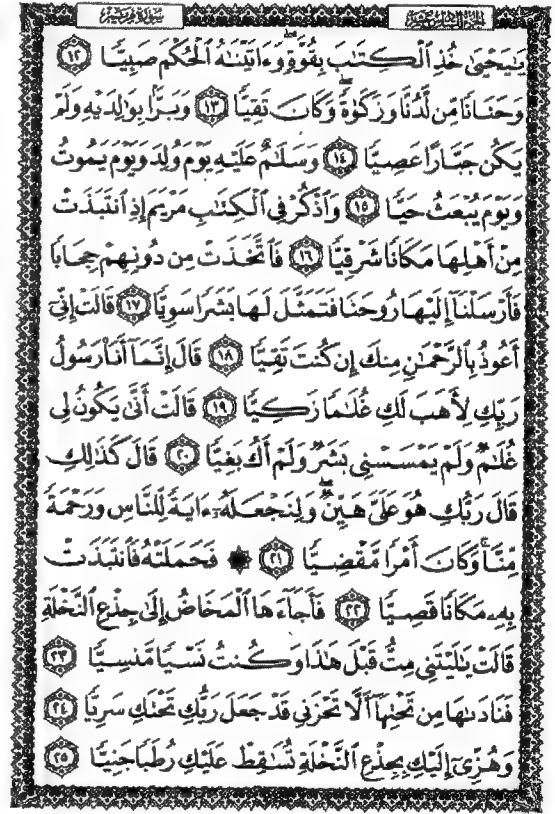 سورة مريم
الجزء السادس عشر
يَٰيَحۡيَىٰ خُذِ ٱلۡكِتَٰبَ بِقُوَّةٖۖ وَءَاتَيۡنَٰهُ ٱلۡحُكۡمَ صَبِيّٗا ١٢
وَحَنَانٗا مِّن لَّدُنَّا وَزَكَوٰةٗۖ وَكَانَ تَقِيّٗا ١٣ وَبَرَّۢا بِوَٰلِدَيۡهِ وَلَمۡ
يَكُن جَبَّارًا عَصِيّٗا ١٤ وَسَلَٰمٌ عَلَيۡهِ يَوۡمَ وُلِدَ وَيَوۡمَ يَمُوتُ
وَيَوۡمَ يُبۡعَثُ حَيّٗا ١٥ وَٱذۡكُرۡ فِي ٱلۡكِتَٰبِ مَرۡيَمَ إِذِ ٱنتَبَذَتۡ
مِنۡ أَهۡلِهَا مَكَانٗا شَرۡقِيّٗا ١٦ فَٱتَّخَذَتۡ مِن دُونِهِمۡ حِجَابٗا
فَأَرۡسَلۡنَآ إِلَيۡهَا رُوحَنَا فَتَمَثَّلَ لَهَا بَشَرٗا سَوِيّٗا ١٧ قَالَتۡ إِنِّيٓ
أَعُوذُ بِٱلرَّحۡمَٰنِ مِنكَ إِن كُنتَ تَقِيّٗا ١٨ قَالَ إِنَّمَآ أَنَا۠ رَسُولُ
رَبِّكِ لِأَهَبَ لَكِ غُلَٰمٗا زَكِيّٗا ١٩ قَالَتۡ أَنَّىٰ يَكُونُ لِي
غُلَٰمٞ وَلَمۡ يَمۡسَسۡنِي بَشَرٞ وَلَمۡ أَكُ بَغِيّٗا ٢٠ قَالَ كَذَٰلِكِ
قَالَ رَبُّكِ هُوَ عَلَيَّ هَيِّنٞۖ وَلِنَجۡعَلَهُۥٓ ءَايَةٗ لِّلنَّاسِ وَرَحۡمَةٗ
مِّنَّاۚ وَكَانَ أَمۡرٗا مَّقۡضِيّٗا ٢١ ۞ فَحَمَلَتۡهُ فَٱنتَبَذَتۡ
بِهِۦ مَكَانٗا قَصِيّٗا ٢٢ فَأَجَآءَهَا ٱلۡمَخَاضُ إِلَىٰ جِذۡعِ ٱلنَّخۡلَةِ
قَالَتۡ يَٰلَيۡتَنِي مِتُّ قَبۡلَ هَٰذَا وَكُنتُ نَسۡيٗا مَّنسِيّٗا ٢٣
فَنَادَىٰهَا مِن تَحۡتِهَآ أَلَّا تَحۡزَنِي قَدۡ جَعَلَ رَبُّكِ تَحۡتَكِ سَرِيّٗا ٢٤
وَهُزِّيٓ إِلَيۡكِ بِجِذۡعِ ٱلنَّخۡلَةِ تُسَٰقِطۡ عَلَيۡكِ رُطَبٗا جَنِيّٗا ٢٥